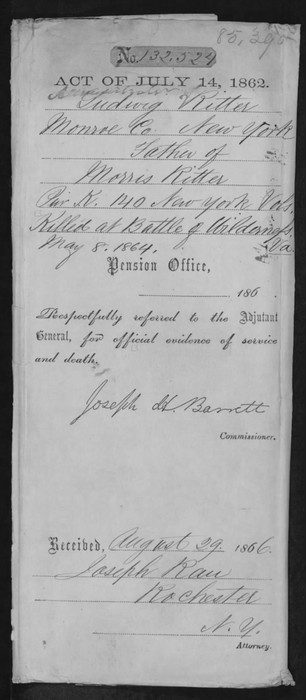 85,395
No. 132,524
ACT OF JULY 14, 1862.
Ludwig Ritter
Monroe Co New York
Father of
Morris Ritter
Pvt K. 140 New York Vols.
Killed at Battle of Wilderness
Va
May 8, 1864.
Pension Office,
186 .
Respectfully referred to the Adjutant
General, for official evidence of service
and death.
Joseph H Barrett
Commissioner.
Received, August 29. 1866
Joseph Rau
Rochester
N. Y.
Attorney.